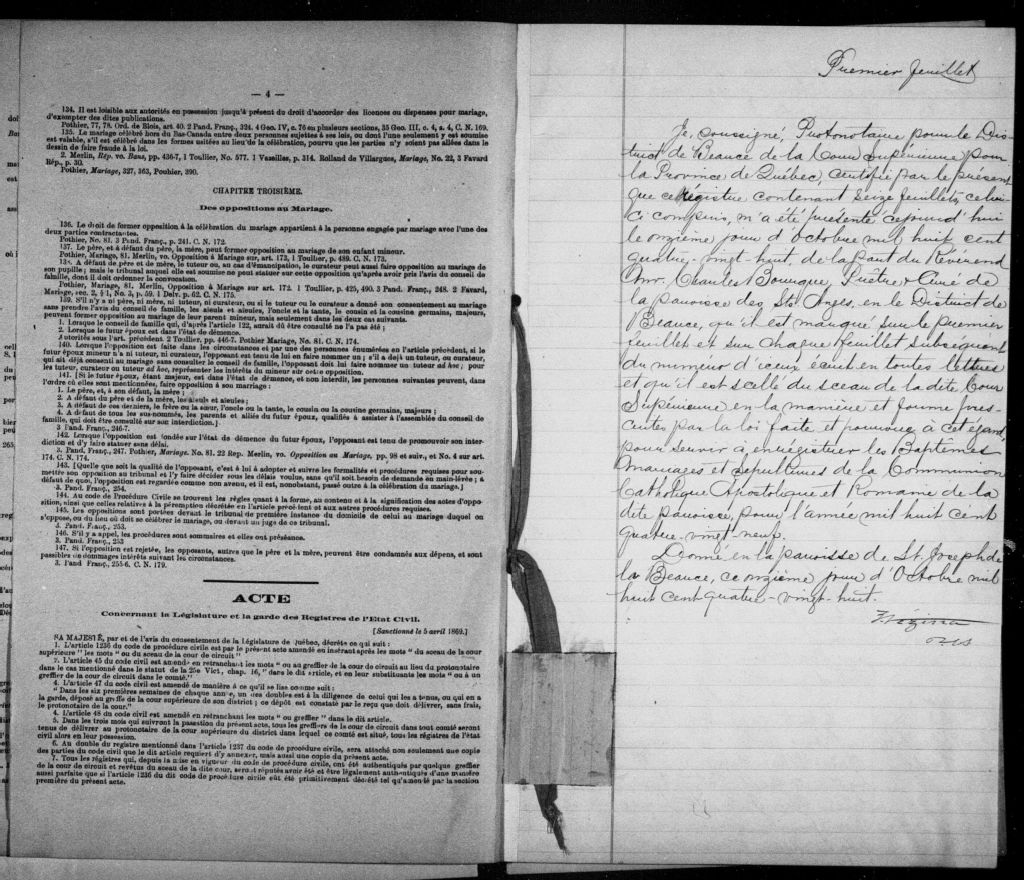 — 4 —
134. Il est loisible aux autorités en possession jusqu'à présent du droit d'accorder des licences ou dispenses pour mariage,
d'exempter des dites publications.
Pothier, 77, 78. Ord. de Blois, art. 40. 2 Pand. Franç., 324. 4 Geo. IV, c. 76 en plusieurs sections, 35 Geo. III, c. 4, s. 4, C. N. 169.
135. Le mariage célébré hors du Bas-Canada entre deux personnes sujettes à ses lois, ou dont l'une seulement y est soumise
est valable, s'il est célébré dans les formes usitées au lieu de la célébration, pourvu que les parties n'y soient pas allées dans le
dessin de faire fraude à la loi.
2. Merlin, Rép. vo. Bans, pp. 436-7, 1 Toullier, No. 577. 1 Vazeilles, p. 314. Rolland de Villargues, Mariage, No. 22, 3 Favard
Rép., p. 30.
Pothier, Mariage, 327, 363, Pouhier, 390.
CHAPITRE TROISIÈME.
Des oppositions au Mariage.
136. Le droit de former opposition à la célébration du mariage appartient à la personne engagée par mariage avec l'une des
deux parties contractantes.
Pothier, No. 81. 3 Pand. Franç., p. 241. C. N. 172.
137. Le père, et à défaut du père, la mère, peut former opposition au mariage de son enfant mineur.
Pothier, Mariage, 81. Merlin, vo. Opposition à Mariage sur, art. 173, 1 Toullier, p. 489. C. N. 173.
138. A défaut de père et de mère, le tuteur ou, en cas d'émancipation, le curateur peut aussi faire opposition au mariage de
son pupille; mais le tribunal auquel elle est soumise ne peut statuer sur cette opposition qu'après avoir pris l'avis du conseil de
famille, dont il doit ordonner la convocation.
Pothier, Mariage, 81. Merlin, Opposition à Mariage sur art. 172. 1 Toullier, p. 425, 490. 3 Pand. Franç., 248. 2 Favard,
Mariage, sec. 2, § 1, No. 3, p. 59. 1 Delv. p. 62. C. N. 175.
139. S'il n'y a ni père, ni mère, ni tuteur, ni curateur, ou si le tuteur ou le curateur a donné son consentement au mariage
sans prendre l'avis du conseil de famille, les aïeuls et aïeules, l'oncle et la tante, le cousin et la cousine germains, majeurs,
peuvent former opposition au mariage de leur parent mineur, mais seulement dans les deux cas suivants.
1. Lorsque le conseil de famille qui, d'après l'article 122, aurait dû être consulté ne l'a pas été;
2. Lorsque le futur époux est dans l'état de démence.
Autorités sous l'art. précédent. 2 Toullier pp. 446-7. Pothier Mariage, No. 81. C. N. 174.
140. Lorsque l'opposition est faite dans les circonstances et par une des personnes énumérées en l'article précédent, si le
futur époux mineur n'a ni tuteur, ni curateur, l'opposant est tenu de lui en faire nommer un; s'il a déjà un tuteur, ou curateur,
qui ait déjà consenti au mariage sans consulter le conseil de famille, l'opposant doit lui faire nommer un tuteur ad hoc; pour
les tuteur, curateur ou tuteur ad hoc, représenter les intérêts du mineur sur cette opposition.
141. [Si le futur époux, étant majeur, est dans l'état de démence, et non interdit, les personnes suivantes peuvent, dans
l'ordre où elles sont mentionnées, faire opposition à son mariage:
1. Le père, et, à son défaut, la mère;
2. A défaut du père et de la mère, les aïeuls et aïeules;
3. A défaut de ces derniers, le frère ou la sœur, l'oncle ou la tante, le cousin ou la cousine germains, majeurs;
4. A défaut de tous les sus-nommés, les parents et alliés du futur époux, qualifiés à assister à l'assemblée du conseil de
famille, qui doit être consulté sur son interdiction.]
3 Pand. Franç., 246-7.
142. Lorsque l'opposition est fondée sur l'état de démence du futur époux, l'opposant est tenu de promouvoir son inter-
diction et d'y faire statuer sans délai.
3. Pand. Franç., 247. Pothier, Mariage, No. 81. 22 Rep. Merlin, vo. Opposition au Mariage, pp. 98 et suiv., et No. 4 sur art.
174. C. N. 174.
143. [Quelque soit la qualité de l'opposant, c'est à lui à adopter et suivre les formalités et procédures requises pour sou-
mettre son opposition au tribunal et l'y faire décider sous les délais voulus, sans qu'il soit besoin de demande en main-levée; à
défaut de quoi, l'opposition est regardée comme non avenu, et il est, nonobstant, passé outre à la célébration du mariage.]
3. Pand. Franç., 254.
144. Au code de Procédure Civile se trouvent les règles quant à la forme, au contenu et à la signification des actes d'oppo-
sition, ainsi que celles relatives à la péremption décrétée en l'article précédent et aux autres procédures requises.
145. Les oppositions sont portées devant le tribunal de première instance du domicile de celui au mariage duquel on
s'oppose, ou du lieu où doit se célébrer le mariage, ou devant un juge de ce tribunal.
3. Pand. Franç., 253.
146. S'il y a appel, les procédures sont sommaires et elles ont préséance.
3. Pand. Franç., 253
147. Si l'opposition est rejetée, les opposants, autres que le père et la mère, peuvent être condamnés aux dépens, et sont
passibles de dommages intérêts suivant les circonstances.
3. Pand. Franç., 255-6. C. N. 179.
ACTE
Concernant la Législature et la garde des Registres de l'Etat Civil.
[Sanctionné le 5 avril 1869.]
SA MAJESTÉ, par et de l'avis du consentement de la Législature de Québec, décrète ce qui suit:
1. L'article 1236 du code de procédure civile est par le présent acte amendé en insérant après les mots "du sceau de la cour
supérieure" les mots "ou du sceau de la cour de circuit"
2. L'article 45 du code civil est amendé en retranchant les mots "ou au greffier de la cour de circuit au lieu du protonotaire
dans le cas mentionné dans le statut de la 25e Vict., chap. 16," dans le dit article, et en leur substituant les mots "ou à un
greffier de la cour de circuit dans le comté."
4. L'article 47 du code civil est amendé de manière à ce qu'il se lise comme suit:
"Dans les six premières semaines de chaque année, un des doubles est à la diligence de celui qui les a tenus, ou qui en a
la garde, déposé au greffe de la cour supérieure de son district; ce dépôt est constaté par le reçu que doit délivrer, sans frais,
le protonotaire de la cour."
4. L'article 48 du code civil est amendé en retranchant les mots "ou greffier" dans le dit article.
5. Dans les trois mois qui suivront la passation du présent acte, tous les greffiers de la cour de circuit dans tout comté seront
tenus de délivrer au protonotaire de la cour supérieure du district dans lequel ce comté est situé, tous les registres de l'état
civil alors en leur possession.
6. Au double du registre mentionné dans l'article 1237 du code de procédure civile, sera attaché non seulement une copie
des parties du code civil que le dit article requiert d'y annexer, mais aussi une copie du présent acte.
7. Tous les registres qui, depuis la mise en vigueur du code de procédure civile, ont été authentiqués par quelque greffier
de la cour de circuit et revêtus du sceau de la dite cour, seront réputés avoir été et être légalement authentiqués d'une manière
aussi parfaite que si l'article 1236 du dit code de procédure civile eût été primitivement décrété tel qu'amendé par la section
première du présent acte.
Premier feuillet
Je, soussigné, Protonotaire pour le Dis-
trict de Beauce de la Cour Supérieure pour
la Province de Québec, certifie par le présent
que ce Régistre contenant Seize feuillets, celui-
ci compris, m'a été présenté cejourd'hui
le onzième jour d'Octobre mil huit cent
quatre-vingt-huit, de la part du Révérend
Mr. Charles Bourque, Prêtre & Curé de
la paroisse des Sts Anges, en le District de
Beauce, qu'il est marqué sur le premier
feuillet et sur chaque feuillet subséquent
du numéro d'iceux écrit en toutes lettres
et qu'il est scellé du sceau de la dite Cour
Supérieure en la manière et forme pres-
crites par la loi faite et pourvue à cet égard,
pour servir à enrégistrer les Baptêmes
Mariages et Sépultures de la Communion
Catholique Apostolique et Romaine de la
dite paroisse, pour l'année mil huit cent
quatre-vingt-neuf.
Donné en la paroisse de St. Joseph de
la Beauce, ce onzième jour d'Octobre mil
huit cent quatre-vingt-huit.